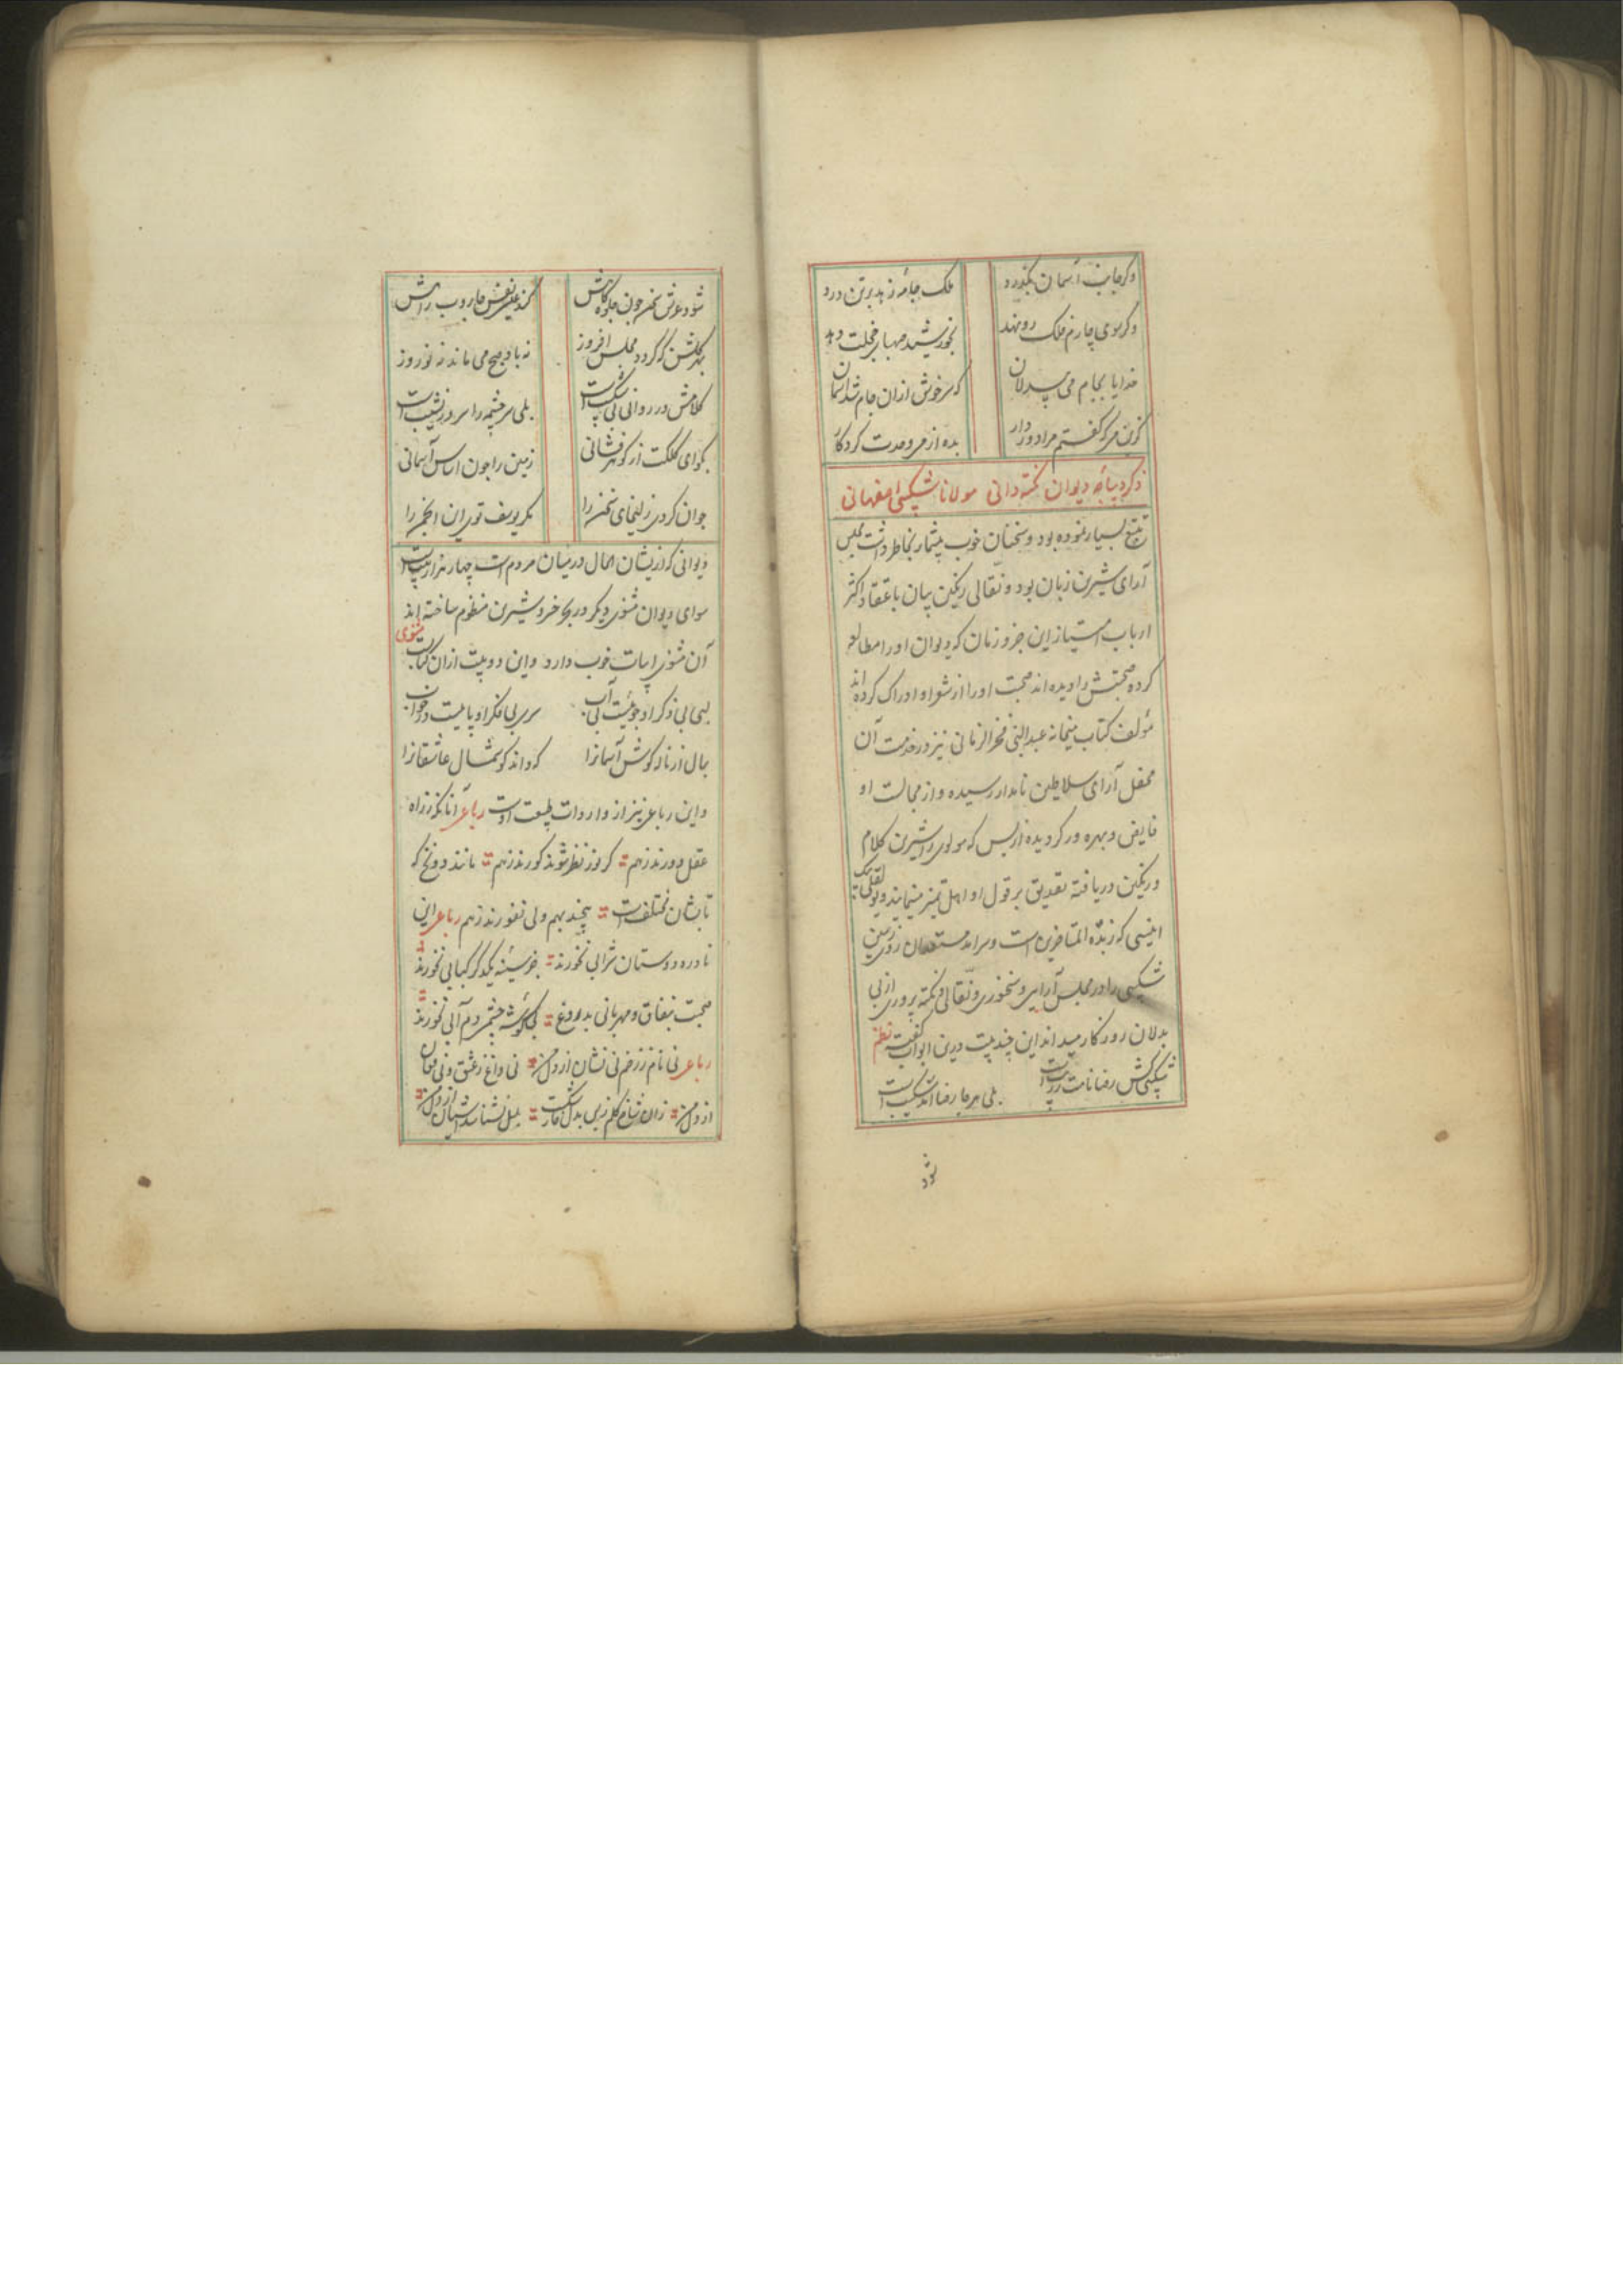 وکر جانب آسمان بکذرد ملک جامهٔ زهد برتن درد
وکر سوی چارم فلک رو نهد بخورشید صهبا خجلت دهد
خدایا بجام می بیدلان که سرخوش ازان جام شد آسمان
کزین می که کفتم مرا دور دار بده از می وحدت کردکار
ذکر دیباجه دیوان نکته دانی مولانا شکیبی اصفهانی
تتبع بسیار نموده بود و سخنان خوب بیشمار بخاطر داشت مجلس
آرای شیرین زبان بود و نقالی رنکین بیان باعتقاد اکثر
ارباب امتیاز این جزو زمان که دیوان او را مطالعه
کرده صحبتش را دیده اند صحبت او را از شعر او ادراک کرده اند
مؤلف کتاب میخانه عبدالنبی فخرالزمانی نیز در خدمت آن
محفل آرای سلاطین نامدار رسیده و از مجالست او
فایض و بهره ور کردیده ازبس که مولوی را شیرین کلام
و رنکین دریافته تصدیق بر قول او اهل تمیز مینماید و یولقلی بیک
انیسی که زبدة المتاخرین است و سرآمد مستعدان روی زمین
شکیبی را در مجلس آرایی و سخنوری و نقالی و نکته پروری از بی
بدلان روزکار میداند این چند بیت درین ابواب کفته نظم
شکیبی کش رضا نامت روست بلی هرجا رضا آمد شکیب است
شود
شود عرش سخن چون جلوه کاهش کند عیسی نفس جاروب راهش
بهر کلشن که کردد مجلس افروز نه باد صبح می ماند نه نوروز
کلامش در روانی بی شکیب است بلی سرچشمه را سر در نشیب است
بکو ای کلکت از کوهرفشانی زمین را چون اساس آسمانی
جوان کردی زلیخای سخن را مکر یوسف توی این انجمن را
دیوانی که ازیشان الحال درمیان مردم است چهار هزار بیت است
سوای دیوان مثنوی دیکر در بحر خسرو شیرین منظوم ساخته اند
آن مثنوی ابیات خوب دارد و این دو بیت ازان کتاب مثنوی
لبی بی ذکر او جوئیست بی آب سری بی فکر او پائیست در خواب
بمال از ناز کوش آسمانرا که داند کوشمال عاشقانرا
و این رباعی نیز از واردات طبیعت اوست رباعی آنانکه ز راه
عقل دورند زهم کر نور نظر شوند کورند زهم مانند دو نخ که
تابشان مختلف است پیچند بهم ولی نفورند زهم رباعی این
نادره دوستان شرابی نخورند جز سینه یکدکر کبابی نخورند
صحبت بنفاق و مهربانی بدروغ بی کوشه چشم دم آبی نخورند
رباعی نی نام ز زخم نی نشان از دل من نی داغ ز عشق و نی فغان
از دل من زان شاخ کلم بدل شکست بلبل نشناسد آشیان از دل من